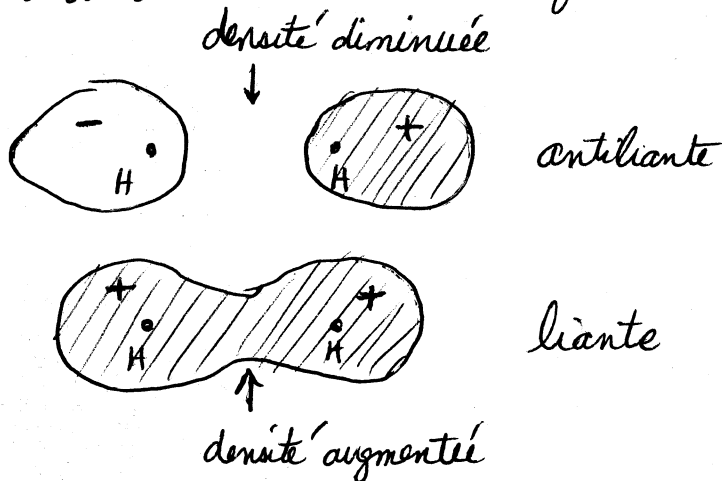 densité diminuée
↓
− +
H H
antiliante
+ +
H H
liante
↑
densité augmentéé